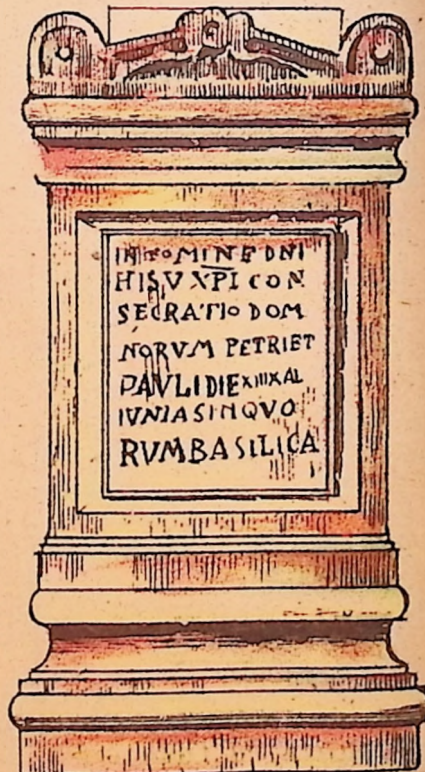 IN NOMINE DNI
HISV XPI CON
SECRATIO DOM
NORVM PETRI ET
PAVLI DIE XIIII XAL
IVNIAS IN QVO
RVM BASILICA